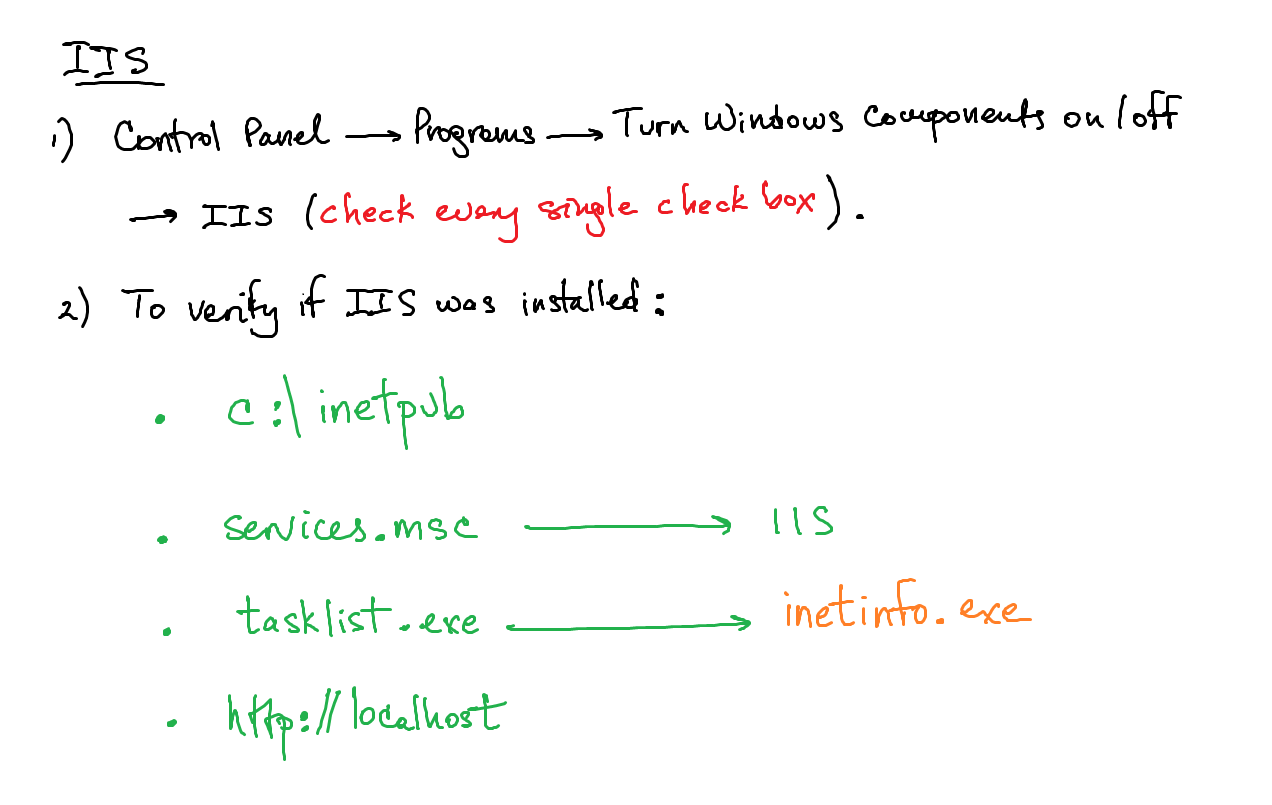 IIS
1) Control Panel → Programs → Turn Windows Components on/off
→ IIS (check every single check box).
2) To verify if IIS was installed:
• c:\inetpub
• services.msc → IIS
• tasklist.exe → inetinfo.exe
• http://localhost